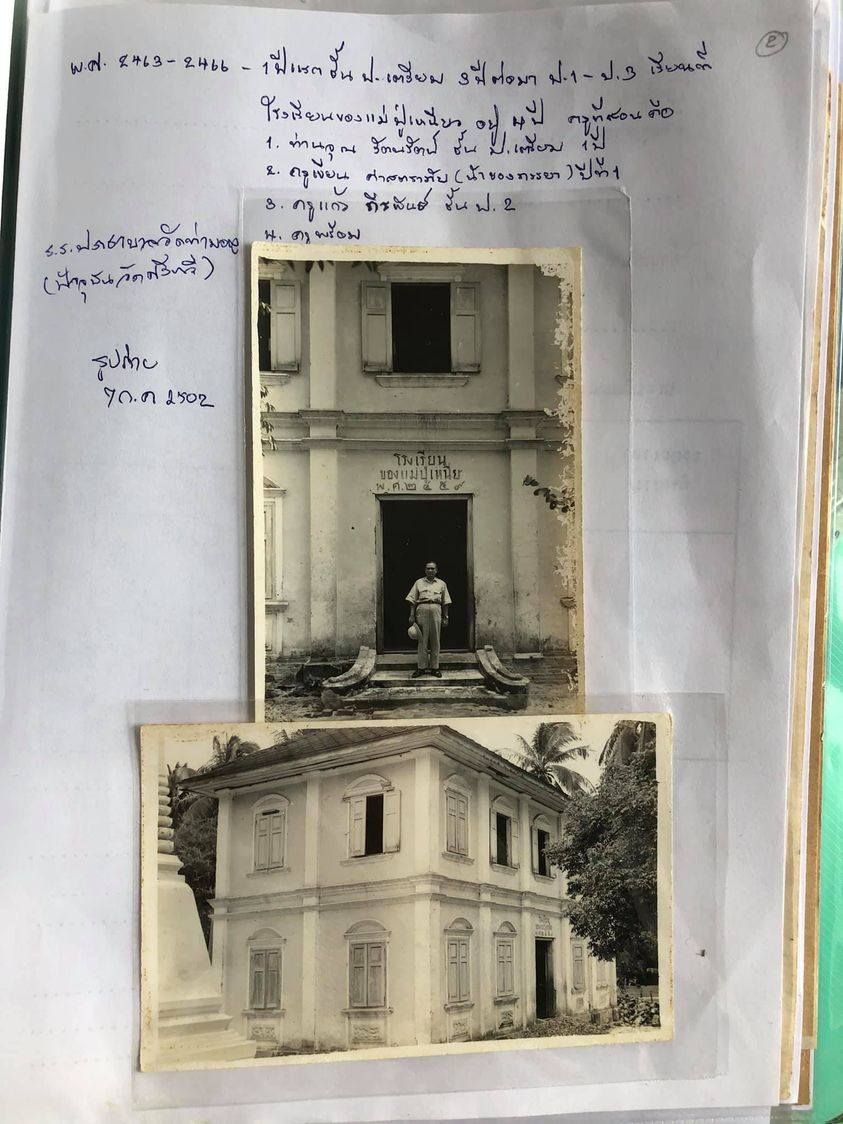 2
พ.ศ. 2463-2466 - 1 ปีแรก ชั้น ป.เตรียม 3 ปีต่อมา ป.1-ป.3 เรียนที่
โรงเรียนของแม่ปู่เหนี่ยว อยู่ 4 ปี ครูที่สอนคือ
1. ท่านขุน รัตนรัตน์ ชั้น ป.เตรียม 1 ปี
2. ครูเขียน (น้าของภรรยา) ปีที่ 1
3. ครูแก้ว ชั้น ป.2
4. ครูพร้อม
ร.ร.ประชาบาลวัด
(ปัจจุบันวัด
รูปถ่าย
7 ก.ค 2502
โรงเรียน
ของแม่ปู่เหนี่ย
พ.ศ.๒๔๕๙